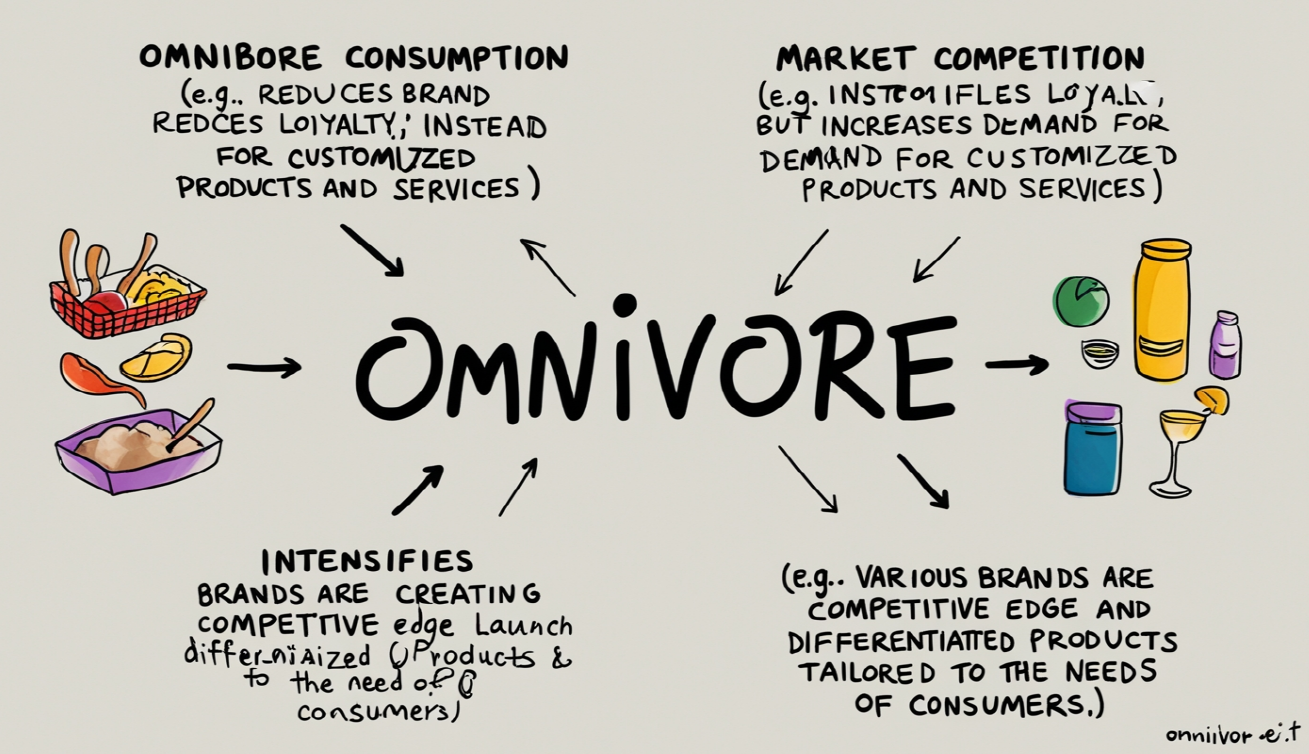 OMNIBORE CONSUMPTION
(e.g.. REDUCES BRAND
REDCES LOIYALTY,; INSTEAD
FOR CUSTOMIZZED
PRODUCTS AND SERVICES)
MARKET COMPETITION
(e.g. LOYALY,
BUT INCREASES DEMAND FOR
DEMAND FOR CUSTOMIZZED
PRODUCTS AND SERVICES)
OMNiVORE
INTENSIFIES
BRANDS ARE CREATING
COMPETTIVE edge Launch
Products &
to the need of
consumers)
(e.g.. VARIOUS BRANDS ARE
COMPETITIVE EDGE AND
DIFFERENTIATTED PRODUCTS
TAILORED TO THE NEEDS
OF CONSUMERS.)